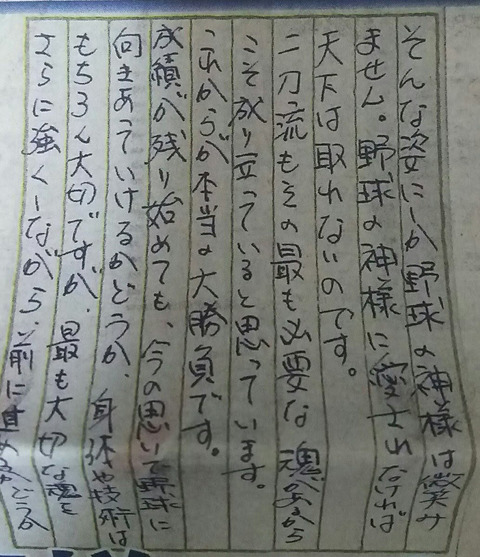 そんな姿にしか野球の神様は微笑み
ません。野球の神様に愛されなければ
天下は取れないのです。
二刀流もその最も必要な魂があるから
こそ成り立っていると思っています。
これからが本当の大勝負です。
成績が残り始めても、今の思いで野球に
向きあっていけるかどうか、身体や技術は
もちろん大切ですが、最も大切な魂を
さらに強くしながら、前に進めるかどうか